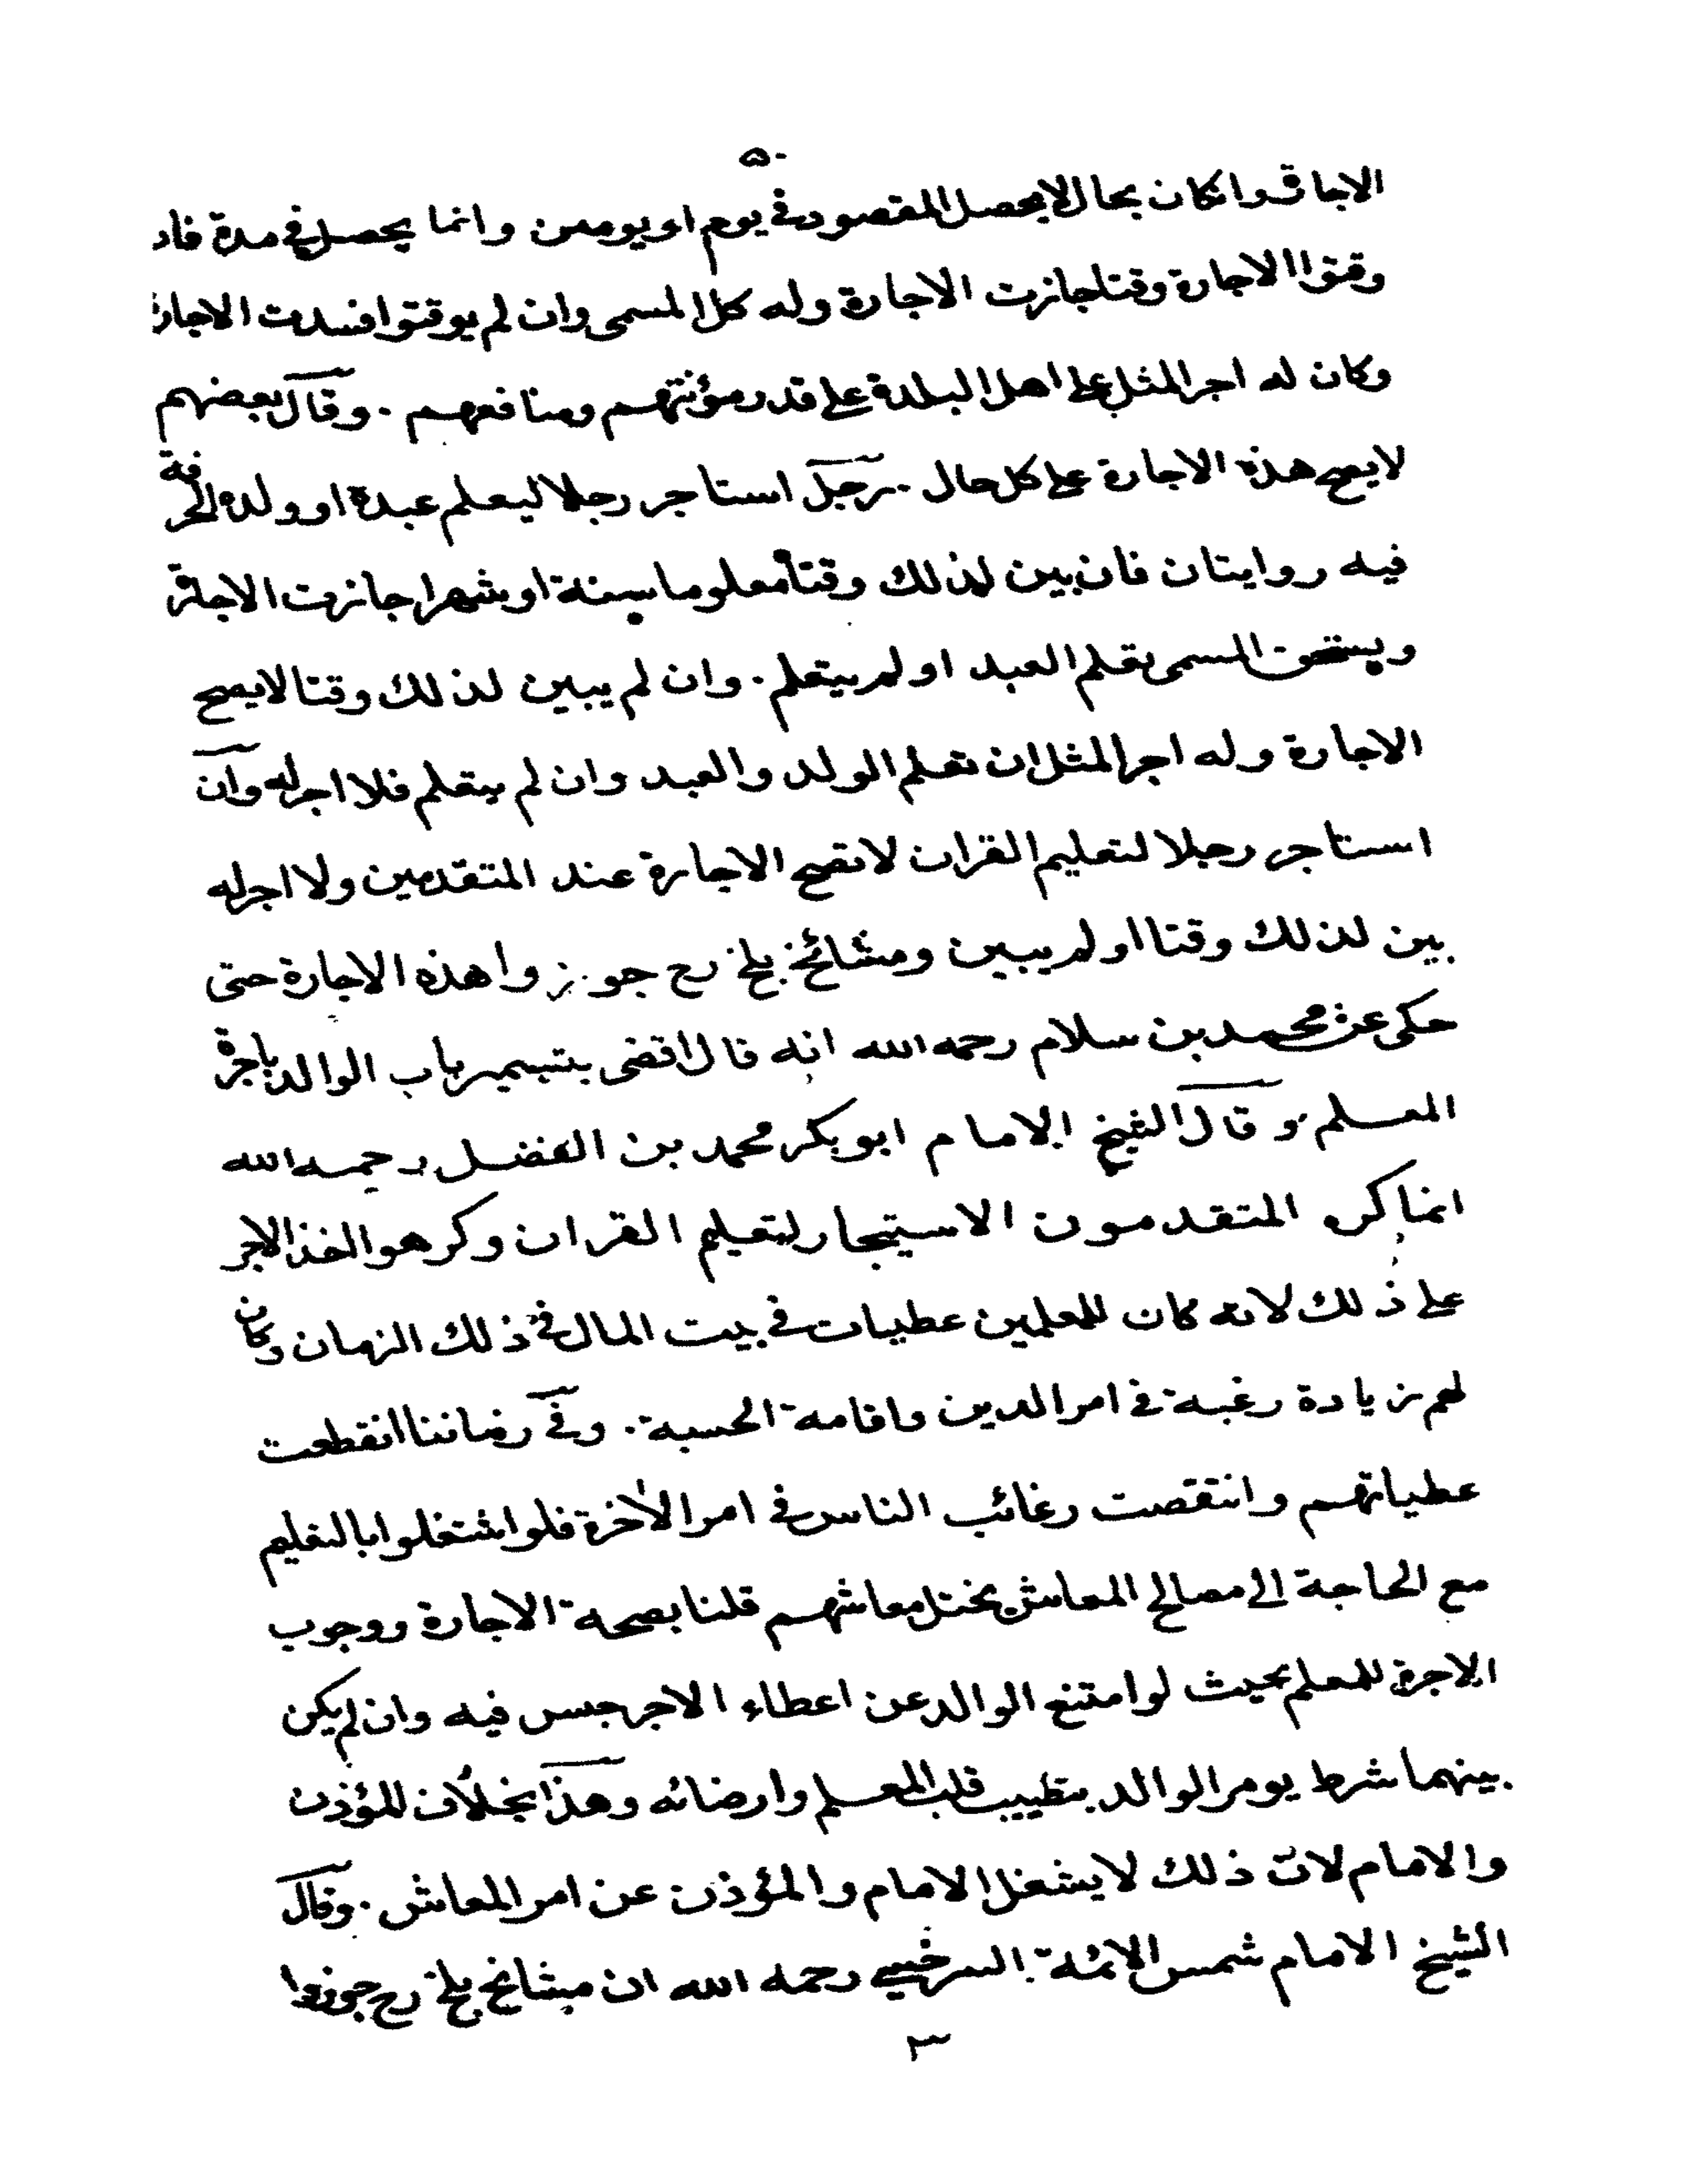 ۵۰
الاجارة وانكان بحال لا يحصل المقصود في يوم او يومين وانما يحصل في مدة فان
وقتوا الاجارة وقتا جازت الاجارة وله كل المسمى وان لم يوقتوا فسدت الاجارة
وكان له اجر المثل على اهل البلدة على قدر مؤنتهم ومنافعهم . وقال بعضهم
لا يصح هذه الاجارة على كل حال . رجل استاجر رجلا ليعلم عبده او ولده الحرفة
فيه روايتان فان بين لذلك وقتا معلوما سنة او شهرا جازت الاجارة
ويستحق المسمى تعلم العبد او لم يتعلم . وان لم يبين لذلك وقتا لا يصح
الاجارة وله اجر المثل ان تعلم الولد والعبد وان لم يتعلم فلا اجر له وان
استاجر رجلا لتعليم القران لا تصح الاجارة عند المتقدمين ولا اجر له
بين لذلك وقتا او لم يبين ومشائخ بلخ رح جوزوا هذه الاجارة حتى
حكى عن محمد بن سلام رحمه الله انه قال اقضى بتسمير باب الوالد باجرة
المعلم وقال الشيخ الامام ابو بكر محمد بن الفضل رحمه الله
انما كره المتقدمون الاستيجار لتعليم القران وكرهوا اخذ الاجر
على ذلك لانه كان للمعلمين عطيات في بيت المال في ذلك الزمان وكان
لهم زيادة رغبة في امر الدين واقامة الحسبة . وفي زماننا انقطعت
عطياتهم وانتقصت رغائب الناس في امر الاخرة فلو اشتغلوا بالتعليم
مع الحاجة الى مصالح المعاش يختل معاشهم قلنا بصحة الاجارة ووجوب
الاجرة للمعلم بحيث لو امتنع الوالد عن اعطاء الاجر حبس فيه وان لم يكن
بينهما شرط يومر الوالد بتطييب قلب المعلم وارضائه وهذا بخلاف المؤذن
والامام لان ذلك لا يشغل الامام والمؤذن عن امر المعاش . وقال
الشيخ الامام شمس الائمة السرخسي رحمه الله ان مشائخ بلخ رح جوزوا
٣